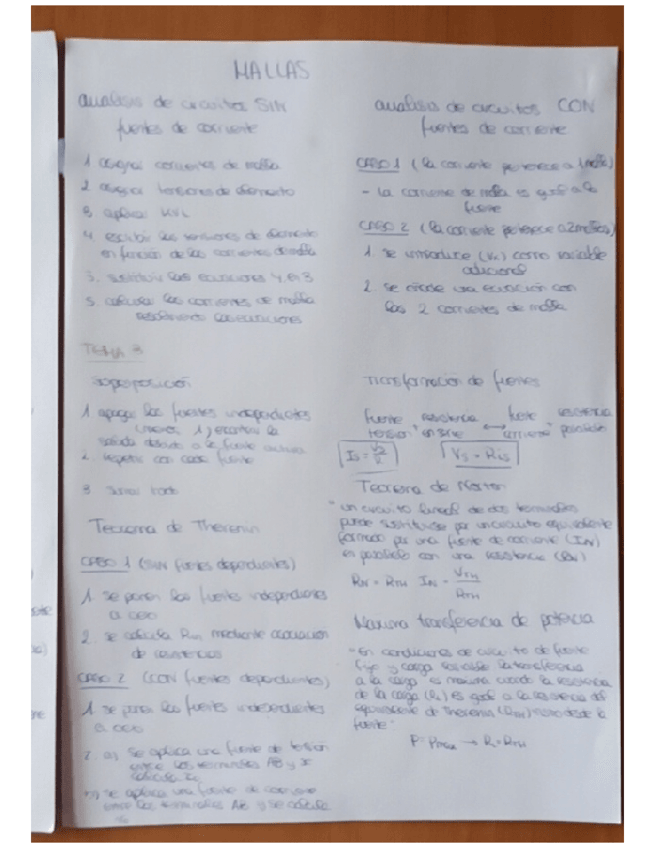 MALLAS
analisis de circuitos SIN
fuentes de corriente
1 asignar corrientes de malla
2 asignar tensiones de elemento
3 aplicar KVL
4. escribir las tensiones de elemento
en función de las corrientes de malla
5. sustituir las ecuaciones 4 en 3
5. calcular las corrientes de malla
resolviendo las ecuaciones
TEMA 3
superposición
1 apagar las fuentes independientes
(menos 1) encontrar la
salida debido a la fuente activa
2. repetir con cada fuente
3 sumar todo
Teorema de Thevenin
CASO 1 (SIN fuentes dependientes)
1 se ponen las fuentes independientes
a cero
2. se calcula RTH mediante asociación
de resistencias
CASO 2 (CON fuentes dependientes)
1 se ponen las fuentes independientes
a cero
2. a) se aplica una fuente de tensión
entre los terminales AB y se
calcula
b) se aplica una fuente de corriente
entre los terminales AB y se calcula
analisis de circuitos CON
fuentes de corriente
CASO 1 (la corriente pertenece a 1 malla)
- la corriente de malla es igual a la
fuente
CASO 2 (la corriente pertenece a 2 mallas)
1. se introduce (Vx) como variable
adicional
2. se añade una ecuación con
las 2 corrientes de malla
Transformación de fuentes
fuente resistencia ↔ fuente resistencia
tension en serie corriente paralelo
Is = Vs/R Vs = Ris
Teorema de Norton
"un circuito lineal de dos terminales
puede sustituirse por un circuito equivalente
formado por una fuente de corriente (IN)
en paralelo con una resistencia (RN)
RN = RTH IN = VTH/RTH
Maxima transferencia de potencia
"En condiciones de circuito de fuente
fijo y carga variable la transferencia
a la carga es maxima cuando la resistencia
de la carga (RL) es igual a la resistencia del
equivalente de Thevenin (RTH) visto desde la
fuente"
P = Pmax → RL = RTH